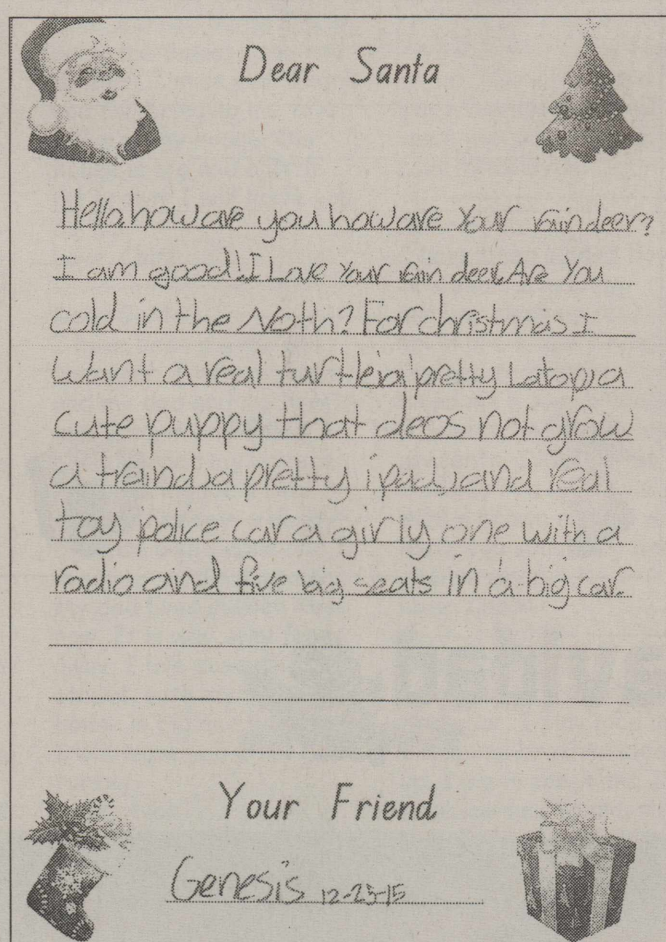 Dear Santa
Hello how are you how are Your raindeer?
I am good! I Love Your rain deer. Are You
cold in the Noth? For christmas I
want a real turtle, a pretty Latop, a
cute puppy that deos not grow
a traind, a pretty ipad, and real
toy police car a girly one with a
radio and five big seats in a big car.
Your Friend
Genesis 12-25-15